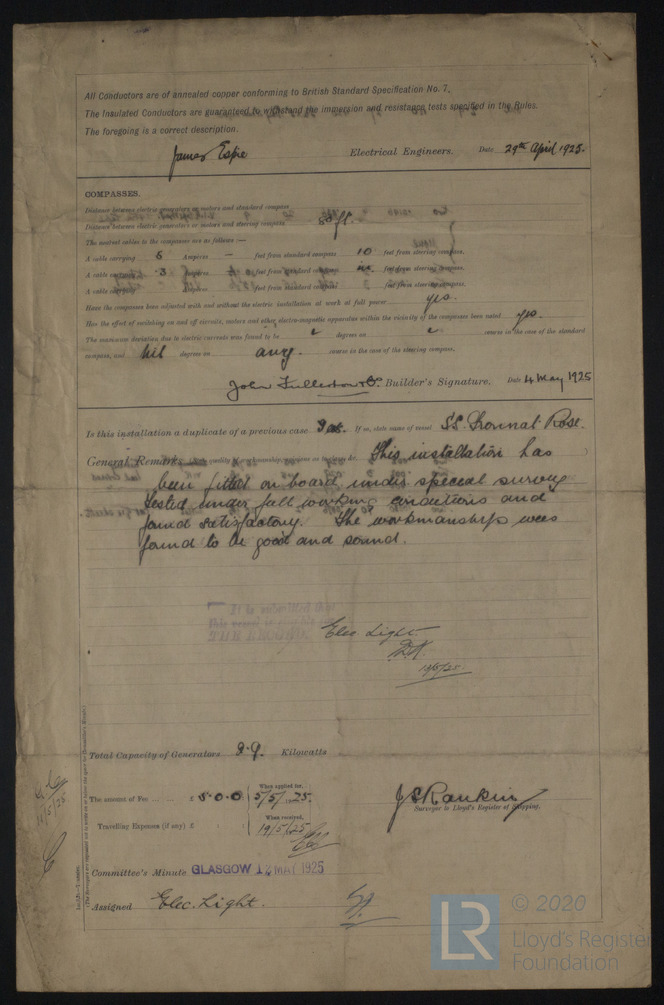 All Conductors are of annealed copper conforming to British Standard Specification No. 7.
The Insulated Conductors are guaranteed to withstand the immersion and resistance tests specified in the Rules.
The foregoing is a correct description.
James Espie Electrical Engineers. Date 29th April 1925.
COMPASSES.
Distance between electric generators or motors and standard compass
Distance between electric generators or motors and steering compass 58 ft.
The nearest cables to the compasses are as follows:—
A cable carrying 5 Ampères — feet from standard compass 10 feet from steering compass.
A cable carrying .3 Ampères feet from standard compass feet from steering compass.
A cable carrying Ampères feet from standard compass feet from steering compass.
Have the compasses been adjusted with and without the electric installation at work at full power yes.
Has the effect of switching on and off circuits, motors and other electro-magnetic apparatus within the vicinity of the compasses been noted yes.
The maximum deviation due to electric currents was found to be degrees on course in the case of the standard
compass, and nil degrees on any course in the case of the steering compass.
John Fullerton & Co. Builder's Signature. Date 4 May 1925
Is this installation a duplicate of a previous case If so, state name of vessel S.S. Rose.
General Remarks This installation has
been fitted on board under special survey
tested under full working conditions and
found satisfactory. The workmanship was
found to be good and sound.
It is submitted that
this vessel is eligible for
THE RECORD. Elec. Light.
19/5/25.
Total Capacity of Generators Kilowatts
The amount of Fee ... ... £ 5.0.0 When applied for, 5/5/1925.
J S Rankin
Surveyor to Lloyd's Register of Shipping.
Travelling Expenses (if any) £ When received, 19/5/25
11/5/25
Committee's Minute GLASGOW 12 MAY 1925
Assigned Elec. Light.
LR © 2020
Lloyd's Register
Foundation